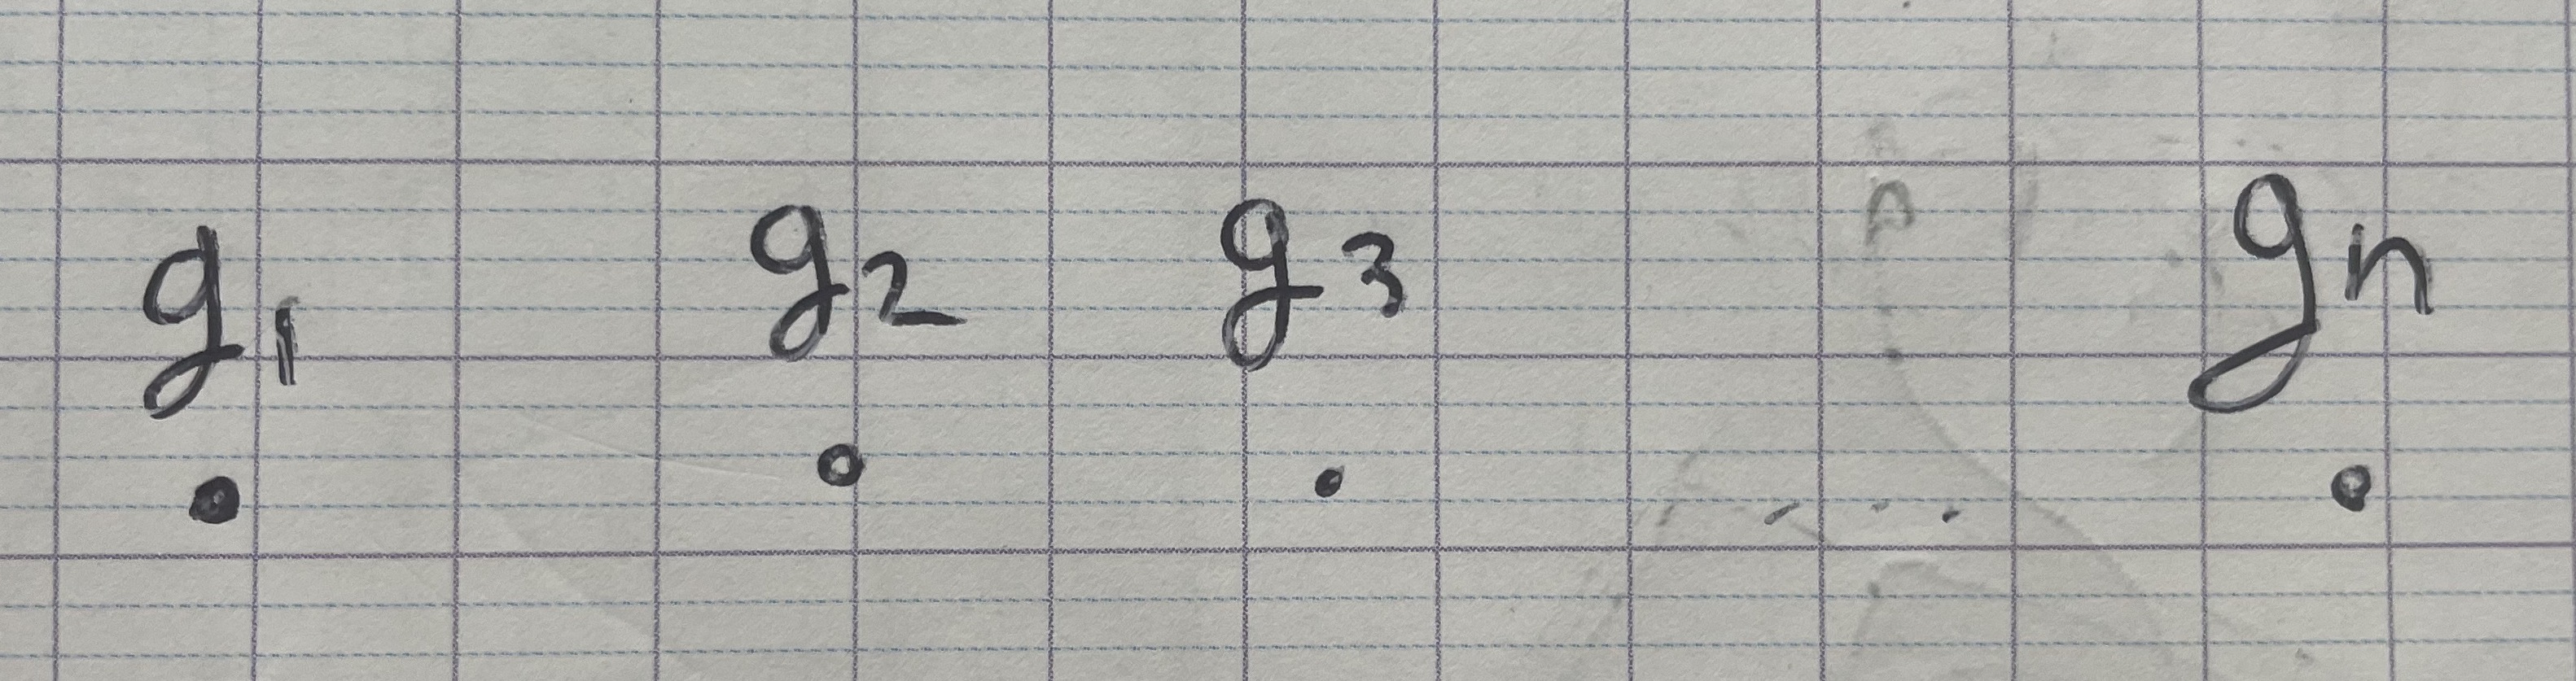 g1 g2 g3 gn